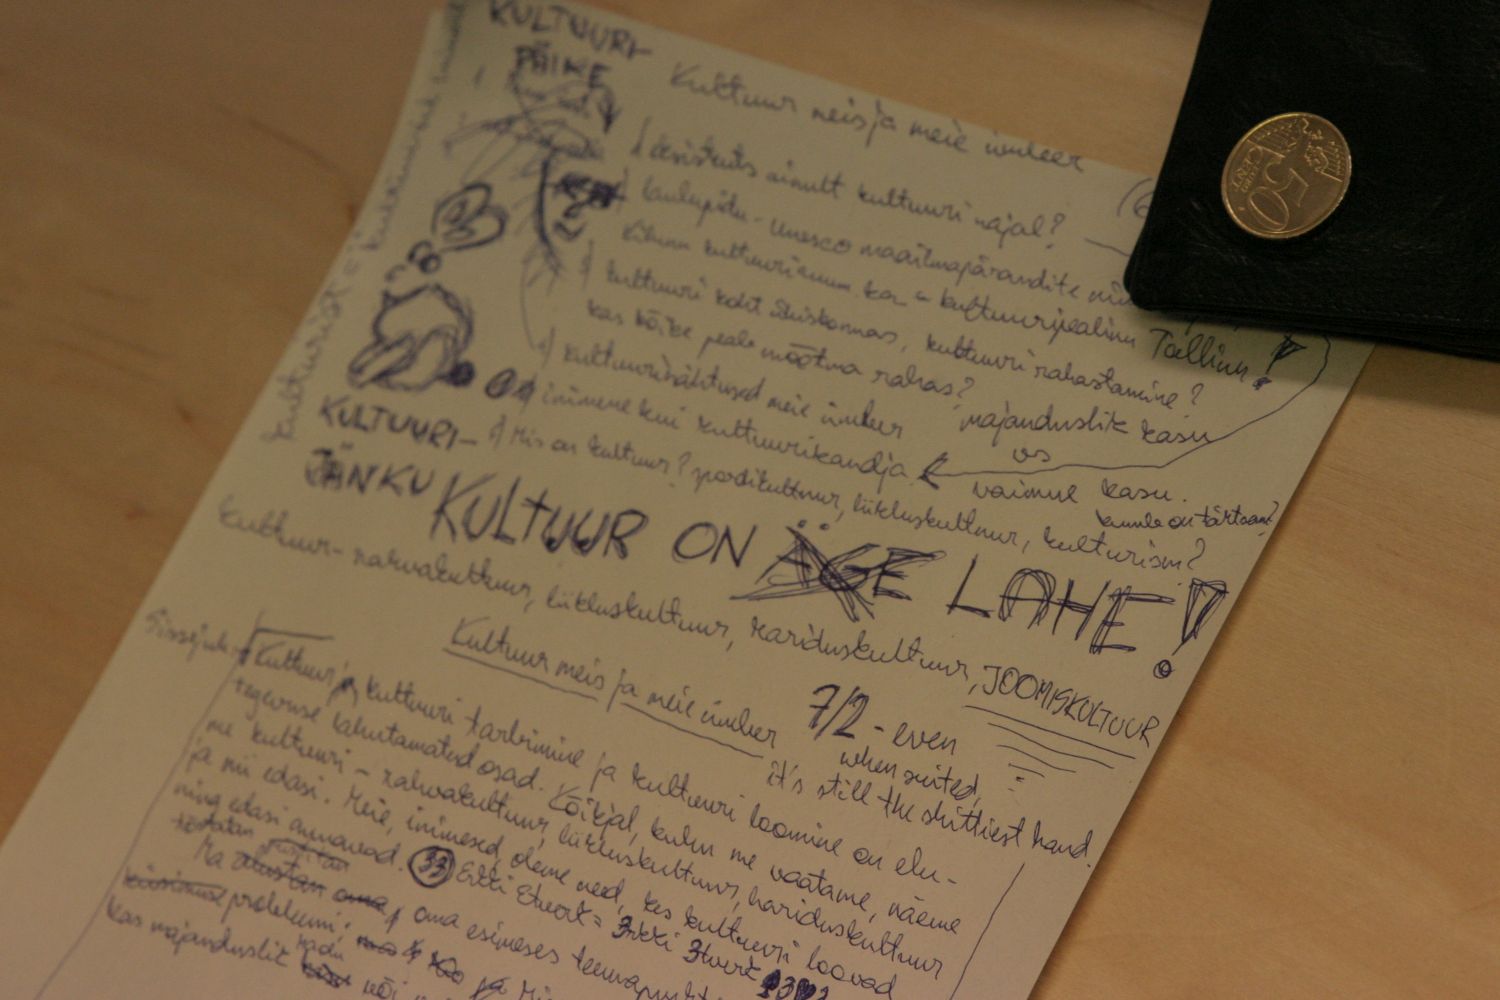 KULTUURI-
PÄIKE
Kultuur meis ja meie ümber
eesistuts ainult kultuuri najal?
laulupidu - Unesco maailmapärandite
Kihnu kultuuriruum ka - kultuuripealinn Tallinn!
kultuuri koht ühiskonnas, kultuuri rahastamine?
kas kõike peab mõõtma rahas? majanduslik kasu
kultuurinähtused meie ümber vs
inimene kui kultuurikandja vaimne kasu.
kumb on tähtsam?
Mis on kultuur? spordikultuur, liikluskultuur, kulturism?
KULTUURI-
JÄNKU
kulturist =
KULTUUR ON ÄGE LAHE!
kultuur - rahvakultuur, liikluskultuur, hariduskultuur, JOOMISKULTUUR
Kultuur meis ja meie ümber
7/2 - even
when suited,
it's still the shittiest hand.
Sissejuh.
Kultuur, kultuuri tarbimine ja kultuuri loomine on elu-
tegevuse lahutamatud osad. Kõikjal, kuhu me vaatame, näeme
me kultuuri - rahvakultuur, liikluskultuur, hariduskultuur
ja nii edasi. Meie, inimesed, oleme need, kes kultuuri loovad
ning edasi annavad. 33 Erki
tõstatan
Ma alustan oma oma esimeses
küsimuse probleemi:
kas majanduslik kasu või